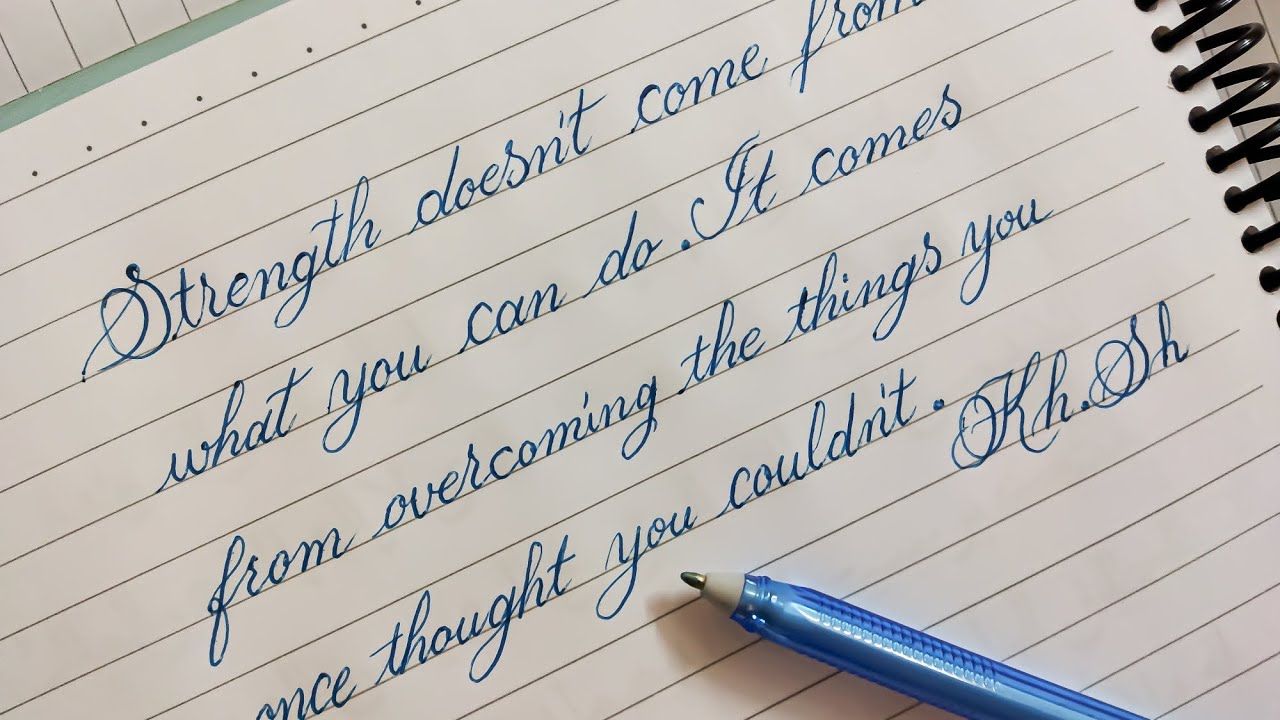 Strength doesn't come from
what you can do. It comes
from overcoming the things you
once thought you couldn't. Kh. Sh